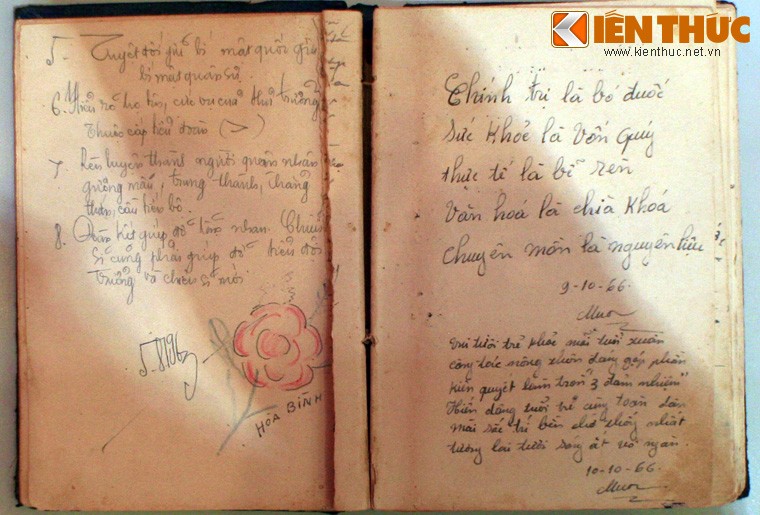 KIẾN THỨC
www.kienthuc.net.vn
5- Tuyệt đối giữ bí mật quốc gia
bí mật quân sự
6. Hiểu rõ lý lịch, của Tiểu trưởng
Thuộc cấp tiểu đoàn (>)
7. Rèn luyện thành người quân nhân
gương mẫu, trung thành, thẳng
thắn, cầu tiến bộ.
8. Đoàn kết giúp đỡ lẫn nhau. Chuẩn
sĩ cũng phải giúp đỡ tiểu đội
trưởng và chiến sĩ mới
HÒA BÌNH
Chính trị là bó đuốc
Sức Khoẻ là Vốn Quý
thực tế là bễ rèn
Văn hoá là chìa Khoá
Chuyên môn là nguyên liệu
9-10-66.
Mươi
tuổi trẻ phơi mãi tuổi xuân
công tác nông thôn đáng góp phần
kiên quyết làm tròn "3 đảm nhiệm"
Hiến dâng tuổi trẻ cùng toàn dân
Mài sắc trí bền chờ thống nhất
tương lai tươi sáng ắt vô ngàn.
10-10-66
Mươi